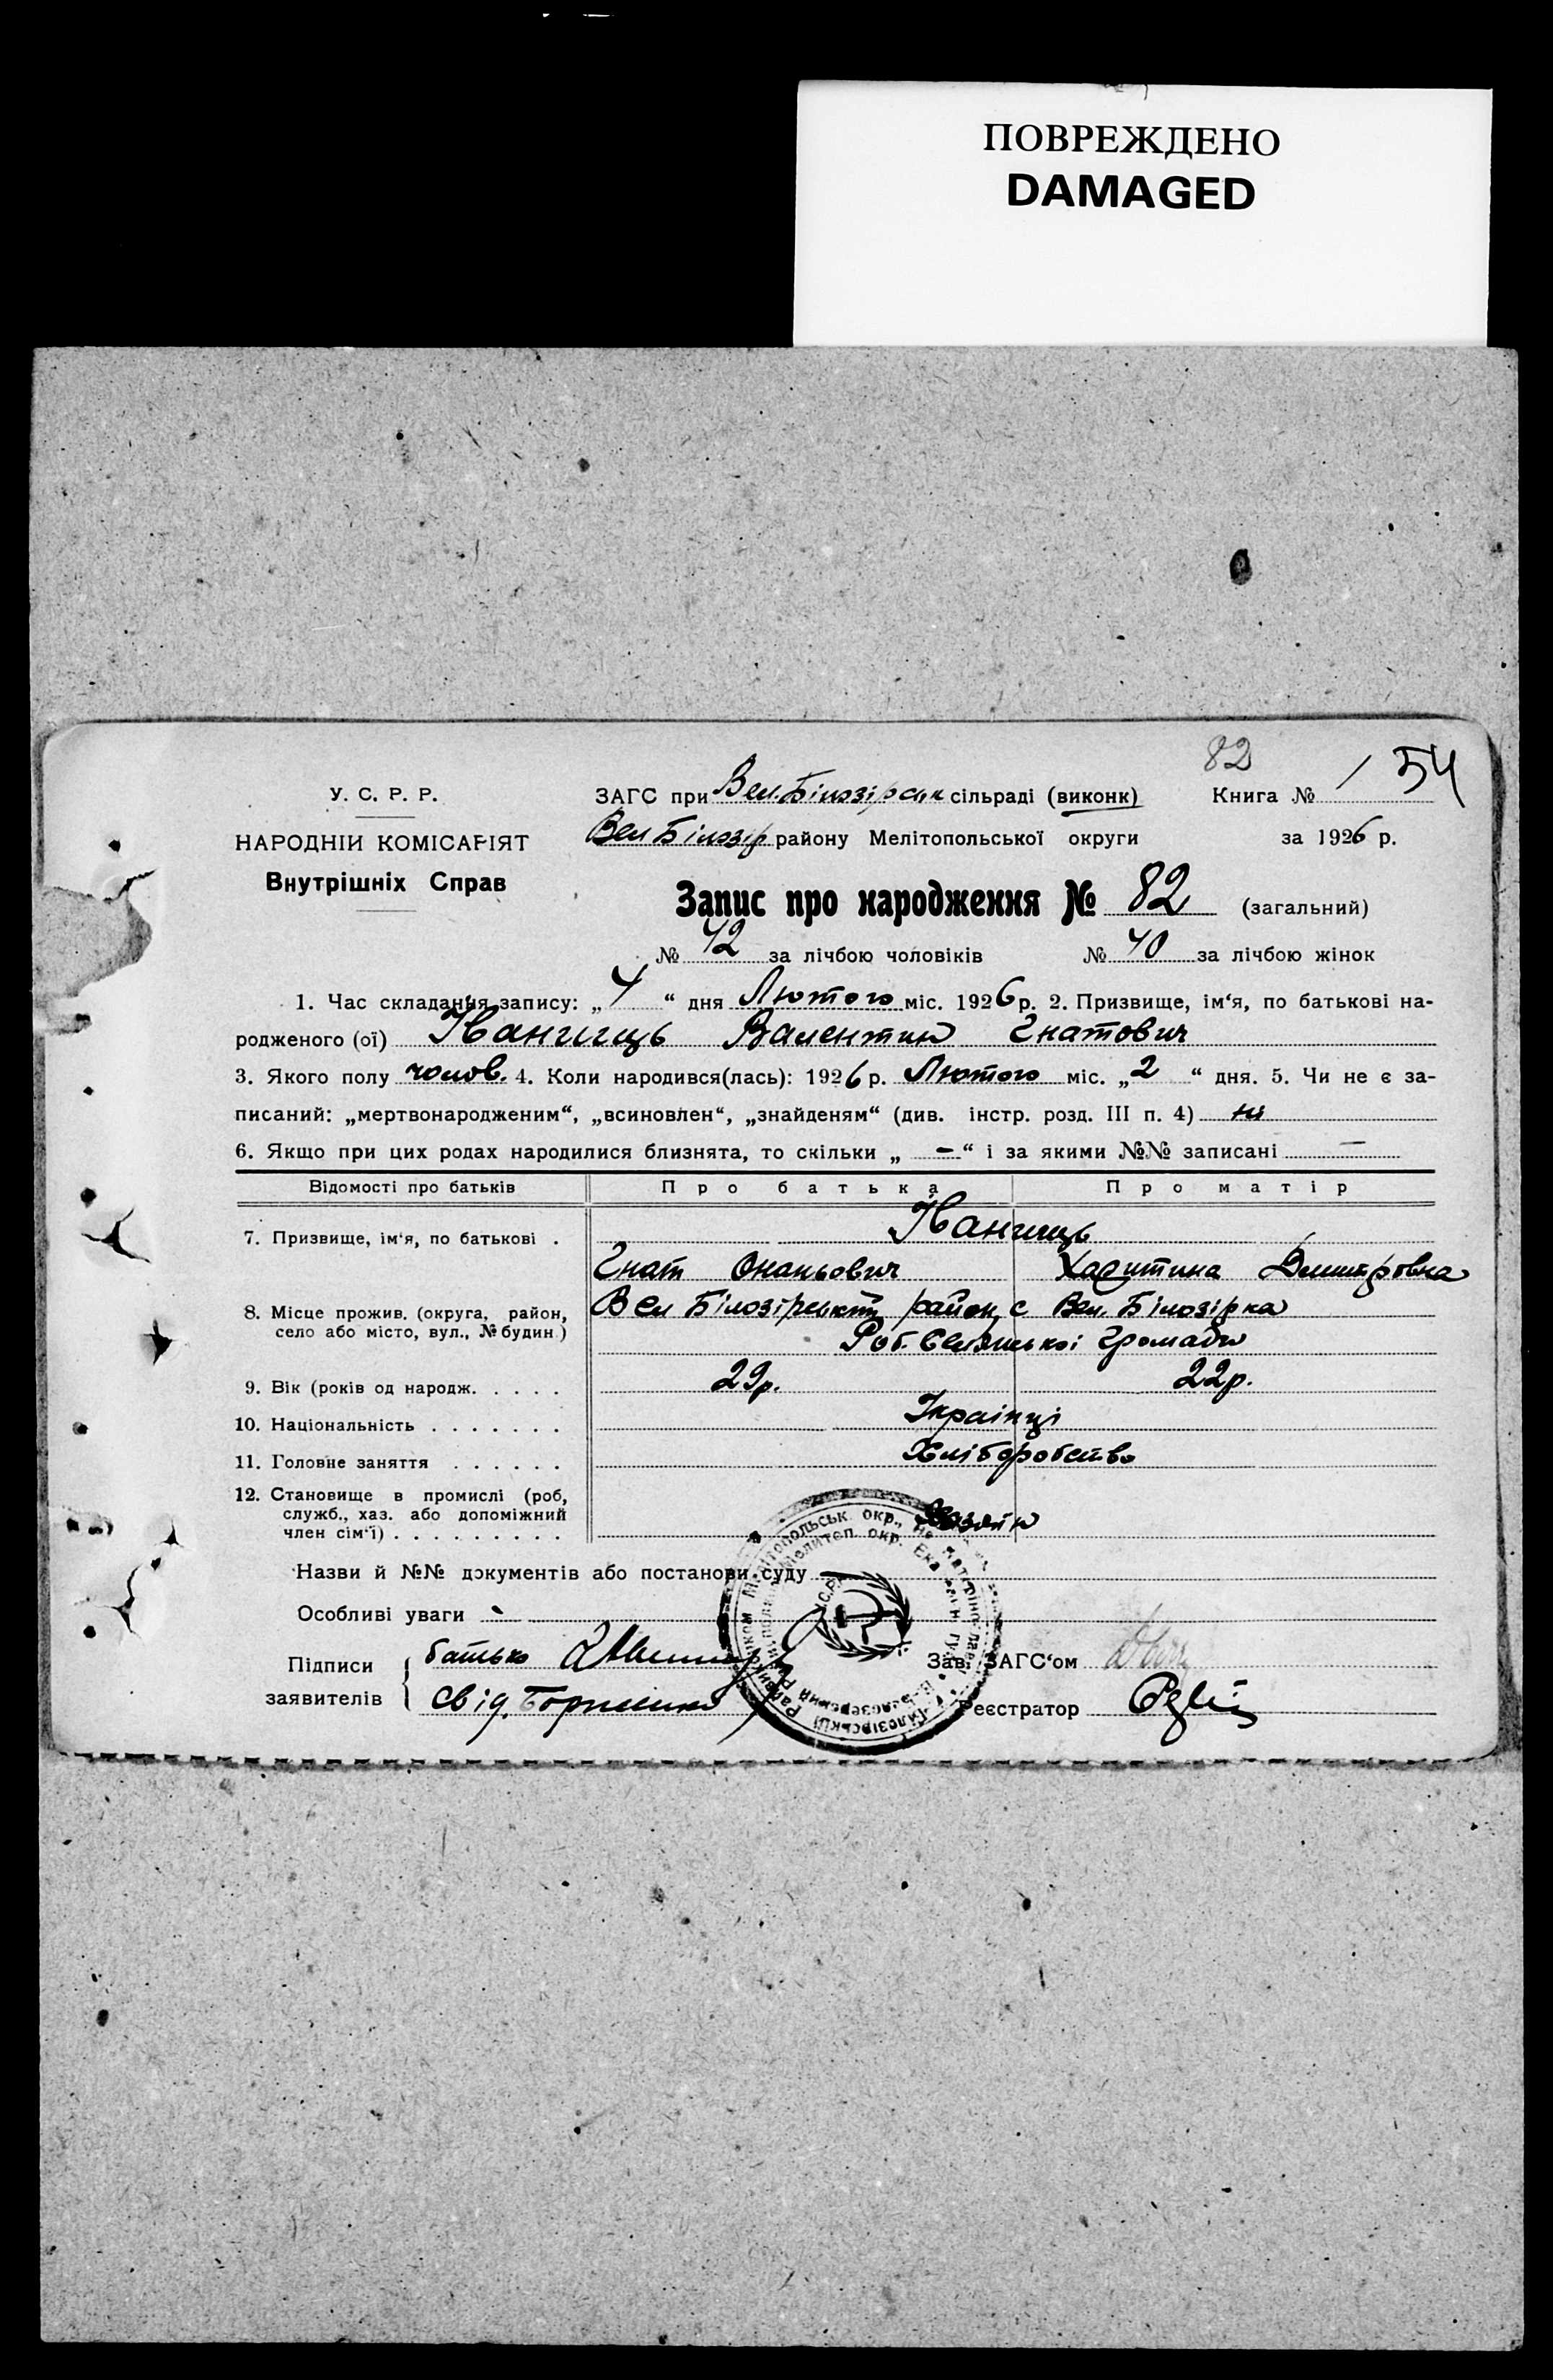 ПОВРЕЖДЕНО
DAMAGED
82
1 54
У. С. Р. Р.
ЗАГС при Вел. Білозірськ сільраді (виконк) Книга №
НАРОДНІЙ КОМІСАРІЯТ
Вел Білозір району Мелітопольської округи за 1926 р.
Внутрішніх Справ
Запис про народження № 82 (загальний)
№ 42 за лічбою чоловіків № 40 за лічбою жінок
1. Час складання запису: „ 4 “ дня Лютого міс. 1926 р. 2. Призвище, ім‘я, по батькові на-
родженого (ої) Іваниць Валентин Гнатович
3. Якого полу чолов. 4. Коли народився(лась): 1926 р. Лютого міс. „ 2 “ дня. 5. Чи не є за-
писаний: „мертвонародженим“, „всиновлен“, „знайденям“ (див. інстр. розд. III п. 4) ні
6. Якщо при цих родах народилися близнята, то скільки „ – “ і за якими №№ записані —
Відомості про батьків Про батька Про матір
7. Призвище, ім‘я, по батькові . Іваниць
Гнат Ононьович Харитина Дмитровна
8. Місце прожив. (округа, район, Вел Білозірський район, с Вел. Білозірка
село або місто, вул., № будин.) Роб. Селянської Громади
9. Вік (років од народж. . . . . 29р. 22р.
10. Національність . . . . . . . Українці
11. Головне заняття . . . . . . Хліборобство
12. Становище в промислі (роб,
служб., хаз. або допоміжний
член сім‘ї) . . . . . . . . . Хазяїн
Назви й №№ документів або постанови суду
Особливі уваги -
Підписи батько
Зав. ЗАГС‘ом
заявителів свід.
Реєстратор